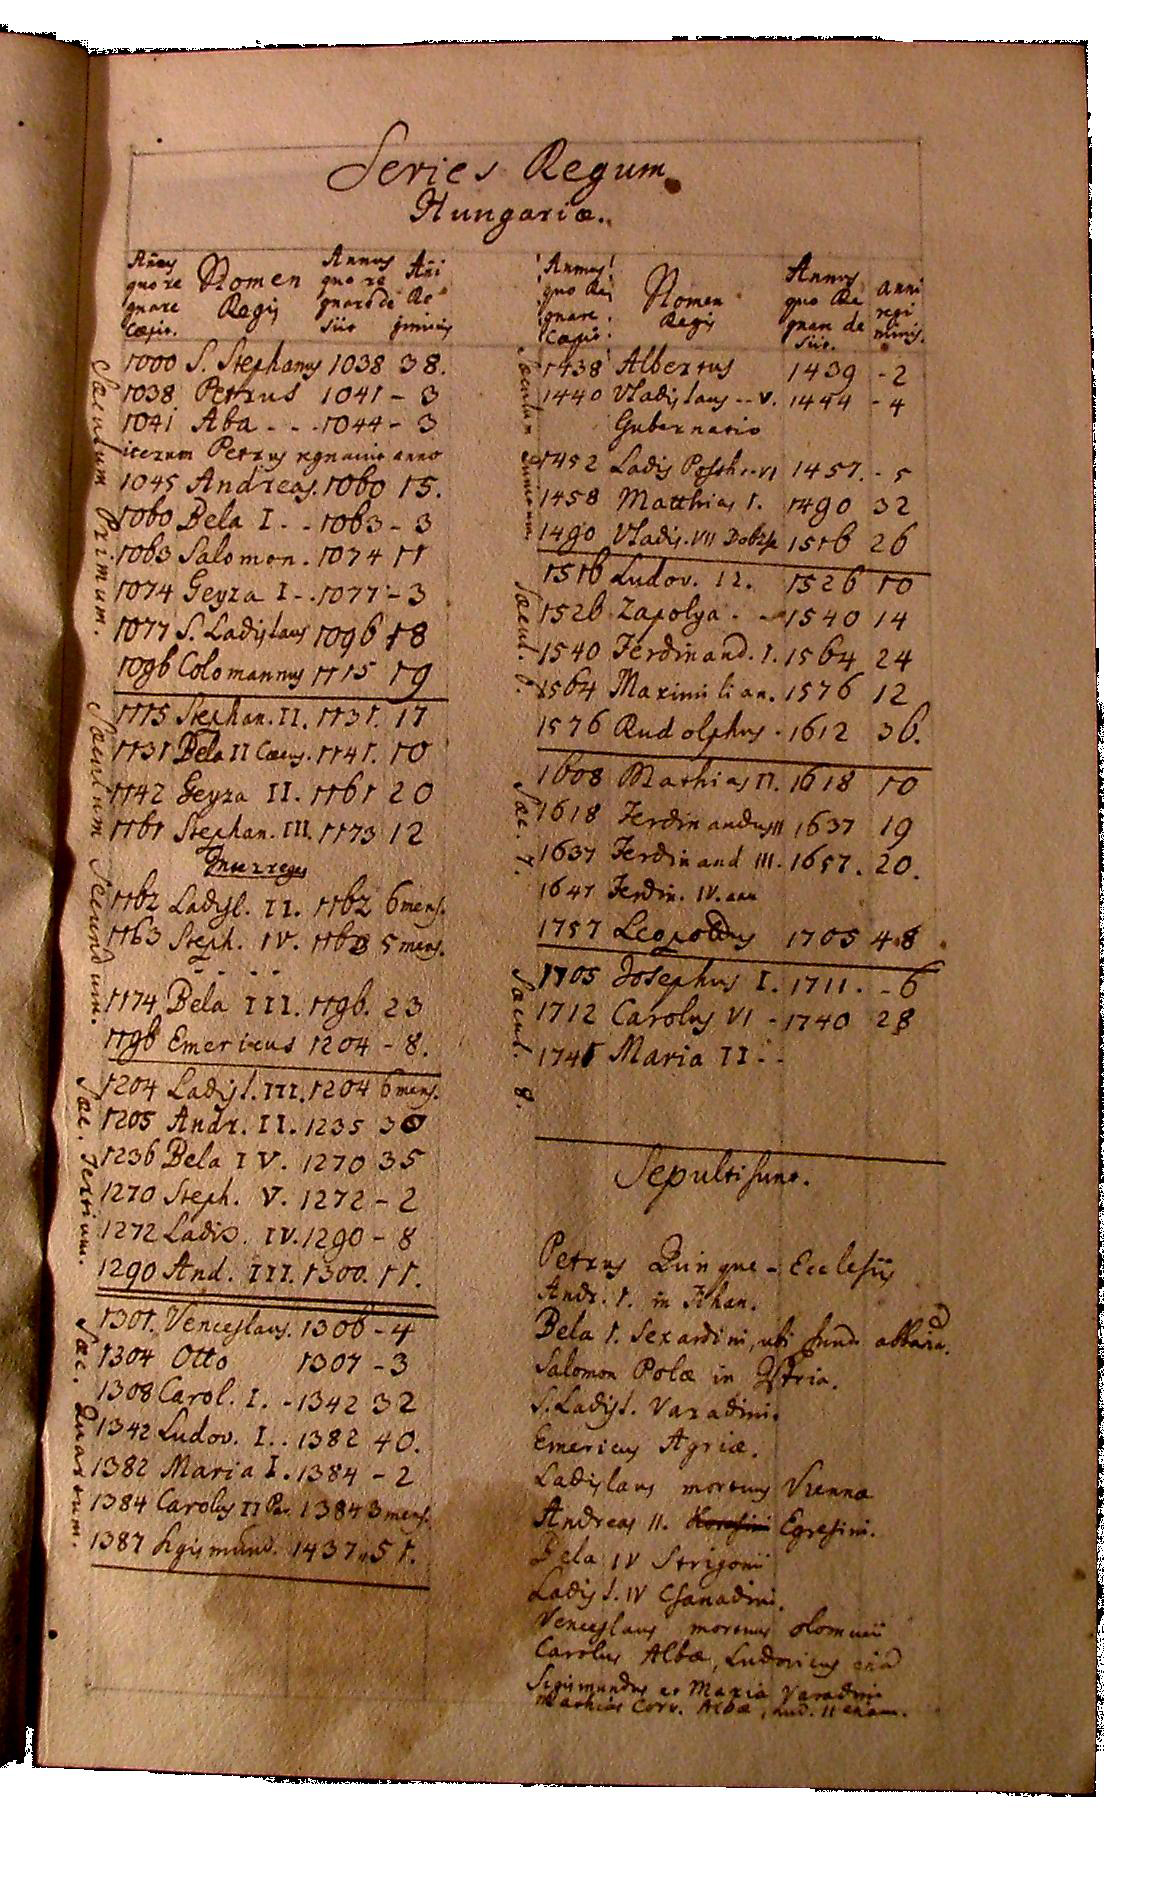 Series Regum
Hungariæ.
Annus quo re gnare Cœpit. Nomen Regis Annus quo re gnare de siit Ani Re giminis
Sæculum Primum.
1000 S. Stephanus 1038 38.
1038 Petrus 1041 - 3
1041 Aba - - - 1044 - 3
iterum Petrus regnavit anno
1045 Andreas. 1060 15.
1060 Bela I - - 1063 - 3
1063 Salomon. 1074 11
1074 Geyza I - . 1077 - 3
1077 S. Ladislaus 1096 18
1096 Colomannus 1115 19
Sæculum Secundum.
1115 Stephan. II. 1131. 17
1131 Bela II Cæcus. 1141. 10
1142 Geyza II. 1161 20
1161 Stephan. III. 1173 12
1162 Ladisl. II. 1162 6 mens.
1163 Steph. IV. 1163 5 mens.
1174 Bela III. 1196. 23
1196 Emericus 1204 - 8.
Sæc. Tertium.
1204 Ladisl. III. 1204 6 mens.
1205 Andr. II. 1235 30
1236 Bela IV. 1270 35
1270 Steph. V. 1272 - 2
1272 Ladis. IV. 1290 - 8
1290 And. III. 1300. 11.
Sæc. Quartum.
1301. Venceslaus. 1306 - 4
1304 Otto 1307 - 3
1308 Carol. I. - 1342 32
1342 Ludov. I. . 1382 40.
1382 Maria I. 1384 - 2
1384 Carolus II 1384 3 mens.
1387 Sigismund. 1437 51.
Annus quo Re gnare. Cœpit Nomen Regis Annus quo Re gnare de siit. anni regi minis.
Sæculum
1438 Albertus 1439 - 2
1440 Vladislaus - - V. 1444 - 4
Gubernatio
1452 Ladis Posth. VI 1457. - 5
1458 Matthias I. 1490 32
1490 Vladis. VII 1516 26
Sæcul. 6.
1516 Ludov. II. 1526 10
1526 Zapolya - 1540 14
1540 Ferdinand. I. 1564 24
1564 Maximilian. 1576 12
1576 Rudolphus - 1612 36.
Sæc. 7.
1608 Mathias II. 1618 10
1618 Ferdinandus II 1637 19
1637 Ferdinand III. 1657. 20.
1647 Ferdin. IV.
1757 Leopoldus 1705 48
Sæcul. 8.
1705 Josephus I. 1711. - 6
1712 Carolus VI - 1740 28
1741 Maria II - -
Sepulti sunt.
Petrus Quinque - Ecclesiis
Andr. I. in Tihan.
Bela I. Sexardini, ubi fund. abbatia.
Salomon Polæ in Istria.
S. Ladisl. Varadini.
Emericus Agriæ.
Ladislaus mortuus Vienna
Andreas II. Egresini.
Bela IV Strigonii
Ladisl. IV Csanadini.
Venceslaus mortuus Olomucii
Carolus Albæ, Ludovicus
Sigismundus et Maria Varadini
Mathias Corv. Albæ, Lud. II etiam.